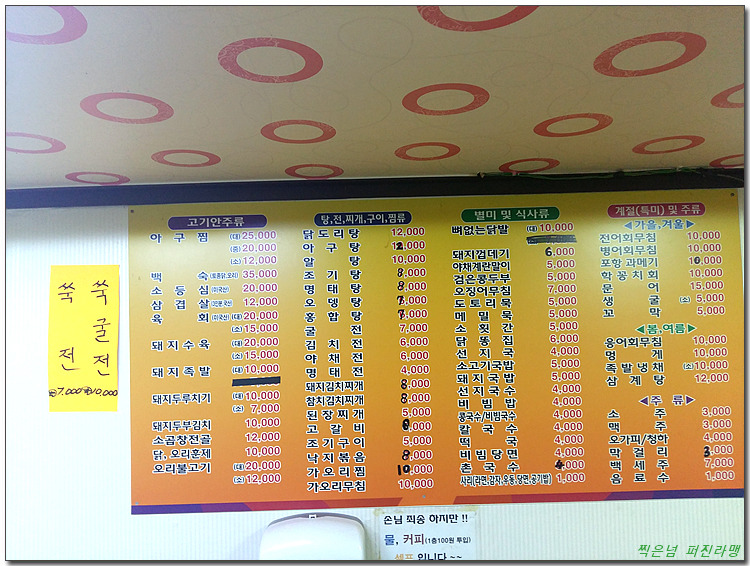 고기안주류
아구찜 (대) 25,000
(중) 20,000
(소) 12,000
백숙 (토종닭,오리) 35,000
소등심 (미국산) 12,000
삼겹살 12,000
육회 (미국산) (대) 20,000
(소) 15,000
돼지수육 (대) 20,000
(소) 15,000
돼지족발 (대) 10,000
돼지두루치기 (대) 10,000
(소) 7,000
돼지두부김치 10,000
소곱창전골 12,000
닭, 오리훈제 10,000
오리불고기 (대) 20,000
(소) 12,000
탕,전,찌개,구이,찜류
닭도리탕 12,000
아구탕
알탕 10,000
조기탕 8,000
명태탕 8,000
오뎅탕 7,000
홍합탕 7,000
굴전 7,000
김치전 6,000
야채전 6,000
명태전 4,000
돼지김치찌개 8,000
참치김치찌개 8,000
된장찌개 5,000
고갈비
조기구이 5,000
낙지볶음 8,000
가오리찜 10,000
가오리무침 10,000
별미 및 식사류
뼈없는닭발 (대) 10,000
돼지껍데기 6,000
야채계란말이 5,000
검은콩두부 5,000
오징어무침 7,000
도토리묵 5,000
메밀묵 5,000
소횟간 5,000
닭똥집 6,000
선지국 4,000
소고기국밥 5,000
돼지국밥 5,000
선지국수 4,000
비빔밥 4,000
콩국수/비빔국수 4,000
칼국수 4,000
떡국 4,000
비빔당면 4,000
촌국수 4,000
사리(라면,감자,우동,당면,공기밥) 1,000
계절(특미) 및 주류
◀가을,겨울▶
전어회무침 10,000
병어회무침 10,000
포항 과메기 10,000
학꽁치회 10,000
문어 15,000
생굴 (소) 5,000
꼬막 5,000
◀봄,여름▶
웅어회무침 10,000
멍게 10,000
족발냉채 (소) 10,000
삼계탕 12,000
◀주류▶
소주 3,000
맥주 3,000
오가피/청하 4,000
막걸리 3,000
백세주 7,000
음료수 1,000
쑥전 7,000
쑥굴전 10,000
손님 죄송 하지만 !!
물, 커피(1층100원 투입)
셀프 입니다 ~~
찍은넘 퍼진라맹